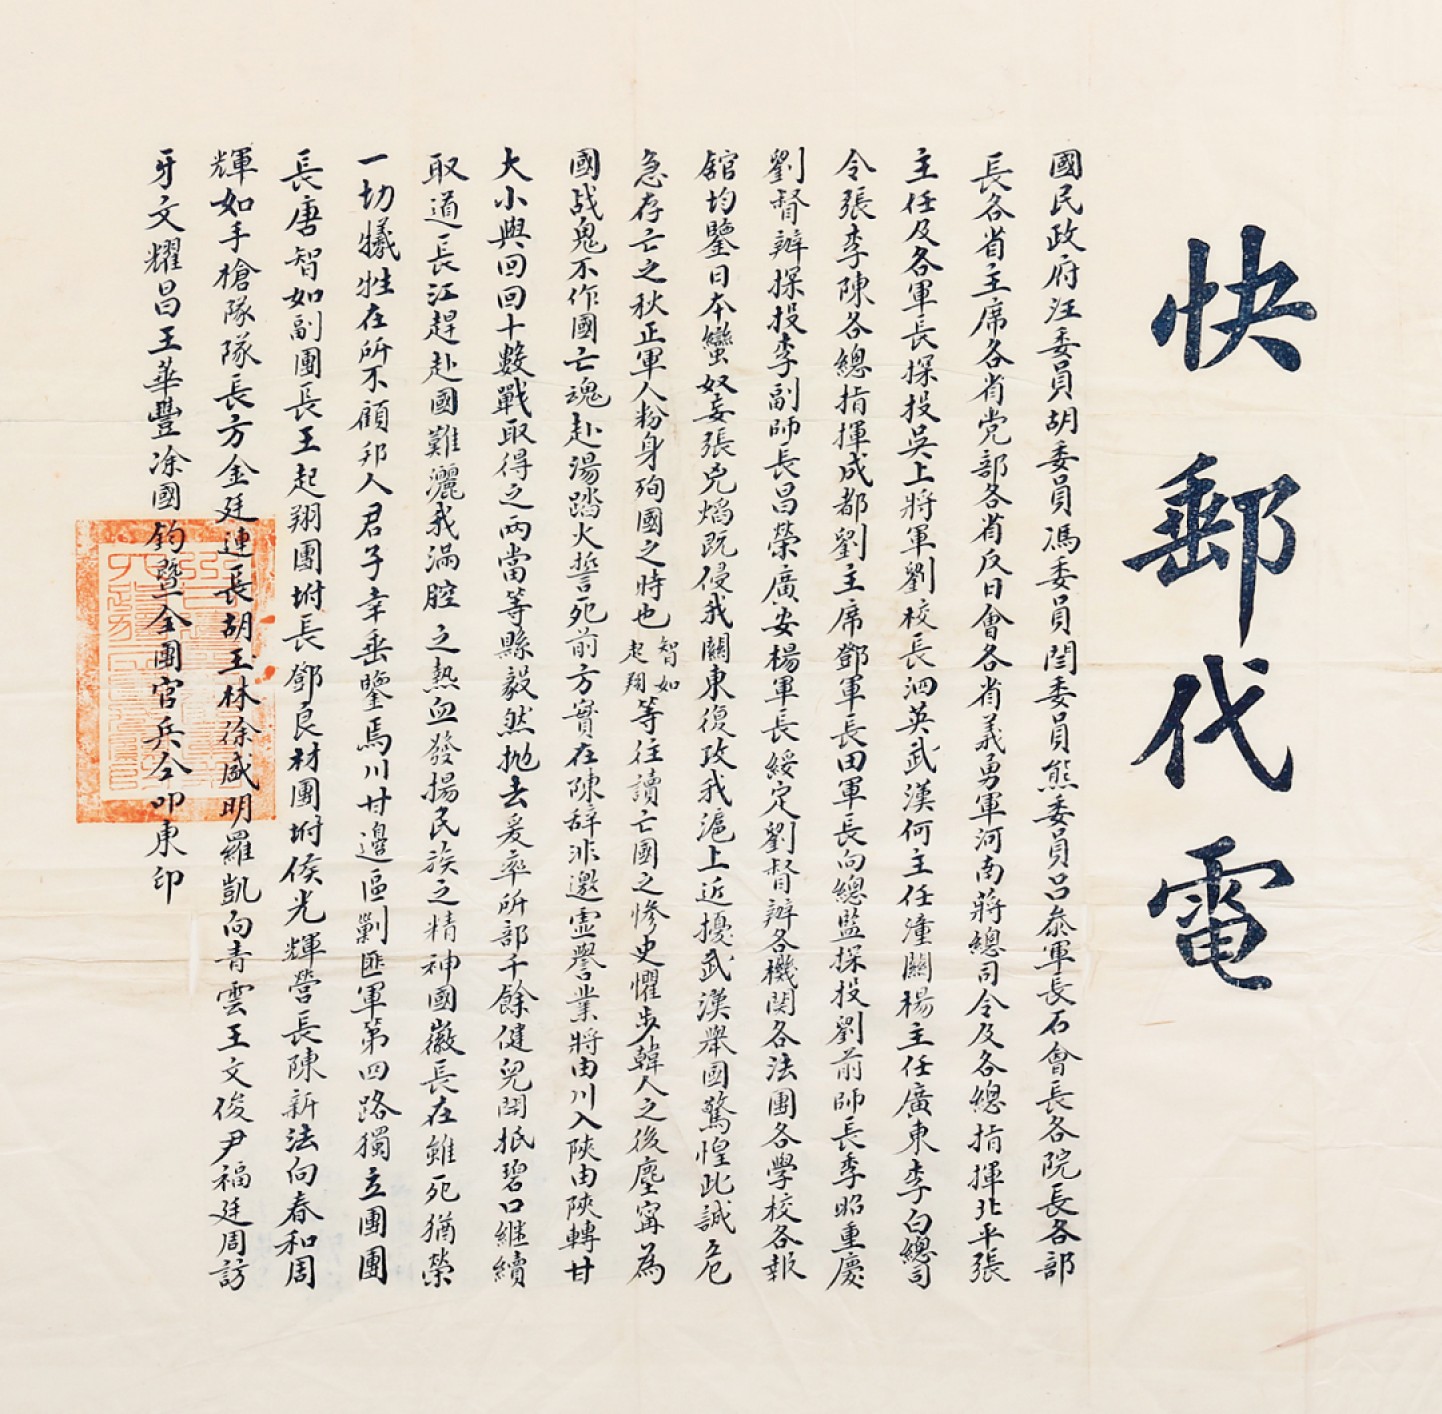 快郵代電
國民政府汪委員胡委員馮委員閻委員熊委員呂叅軍長石會長各院長各部
長各省主席各省党部各省反日會各省義勇軍河南蔣總司令及各總指揮北平張
主任及各軍長探投吳上將軍劉校長泗英武漢何主任潼關楊主任廣東李白總司
令張李陳各總指揮成都劉主席鄧軍長田軍長向總監探投劉前師長季昭重慶
劉督辦探投李副師長昌榮廣安楊軍長綏定劉督辦各機関各法團各學校各報
舘均鑒日本蠻奴妄張兇熖既侵我關東復攻我滬上近擾武漢舉國驚惶此誠危
急存亡之秋正軍人粉身殉國之時也智如起翔等往讀亡國之慘史懼步韓人之後塵甯為
國战鬼不作國亡魂赴湯踏火誓死前方實在陳辞非邀虛譽業將由川入陝由陝轉甘
大小與回回十數戰取得之两當等縣毅然抛去爰率所部千餘健兒開抵碧口継續
取道長江趕赴國難灑我满腔之熱血發揚民族之精神國徽長在雖死猶榮
一切犧牲在所不顧邦人君子幸垂鑒焉川甘邊區剿匪軍第四路獨立團團
長唐智如副團長王起翔團坿長鄧良材團坿侯光輝營長陳新法向春和周
輝如手槍隊隊長方金廷連長胡玉林徐咸明羅凱向青雲王文俊尹福廷周訪
牙文耀昌王華豐涂國鈞暨全團官兵仝叩東印